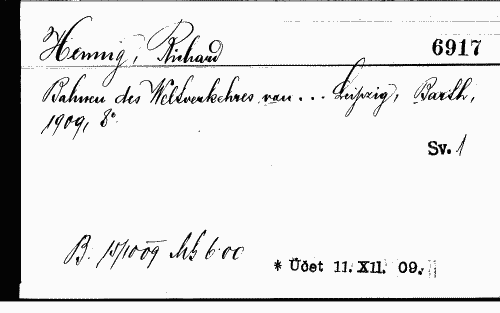 Hennig, Richard 6917
Bahnen des Weltverkehres von... Leipzig, Barth,
1909, 8°.
Sv. 1
B. 15/10 09 Mk 6.00
* Účet 11. XII. 09.